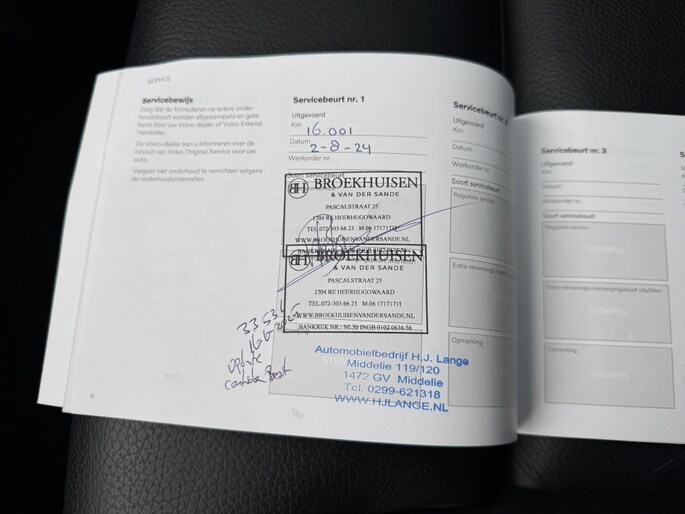 SERVICE
Servicebewijs
Zorg dat de formulieren na iedere onder-
houdsbeurt worden afgestempeld en gete-
kend door uw Volvo-dealer of Volvo Erkend
Hersteller.
De Volvo-dealer kan u informeren over de
inhoud van Volvo Original Service voor uw
auto.
Vergeet niet onderhoud te verrichten volgens
de onderhoudsintervallen.
Servicebeurt nr. 1
Uitgevoerd
Km 16.001
Datum 2-8-24
Werkorder nr.
Soort servicebeurt
BH BROEKHUISEN
& VAN DER SANDE
PASCALSTRAAT 25
1704 RE HEERHUGOWAARD
TEL.072-303 66 23 M.06 17171711
WWW.BROEKHUISENVANDERSANDE.NL
BH BROEKHUISEN
& VAN DER SANDE
PASCALSTRAAT 25
1704 RE HEERHUGOWAARD
TEL.072-303 66 23 M.06 17171711
WWW.BROEKHUISENVANDERSANDE.NL
BANKREK.NR.: NL30 INGB 0102 0836 56
Automobielbedrijf H.J. Lange
Middelie 119/120
1472 GV Middelie
Tel. 0299-621318
WWW.HJLANGE.NL
Servicebeurt nr.
Uitgevoerd
Km
Datum
Werkorder nr.
Soort servicebeurt
Reguliere service
Opmerking
Servicebeurt nr. 3
Uitgevoerd
Km
Datum
Werkorder nr.
Soort servicebeurt
Reguliere service
STEMPEL
STEMPEL
Opmerking
STEMPEL